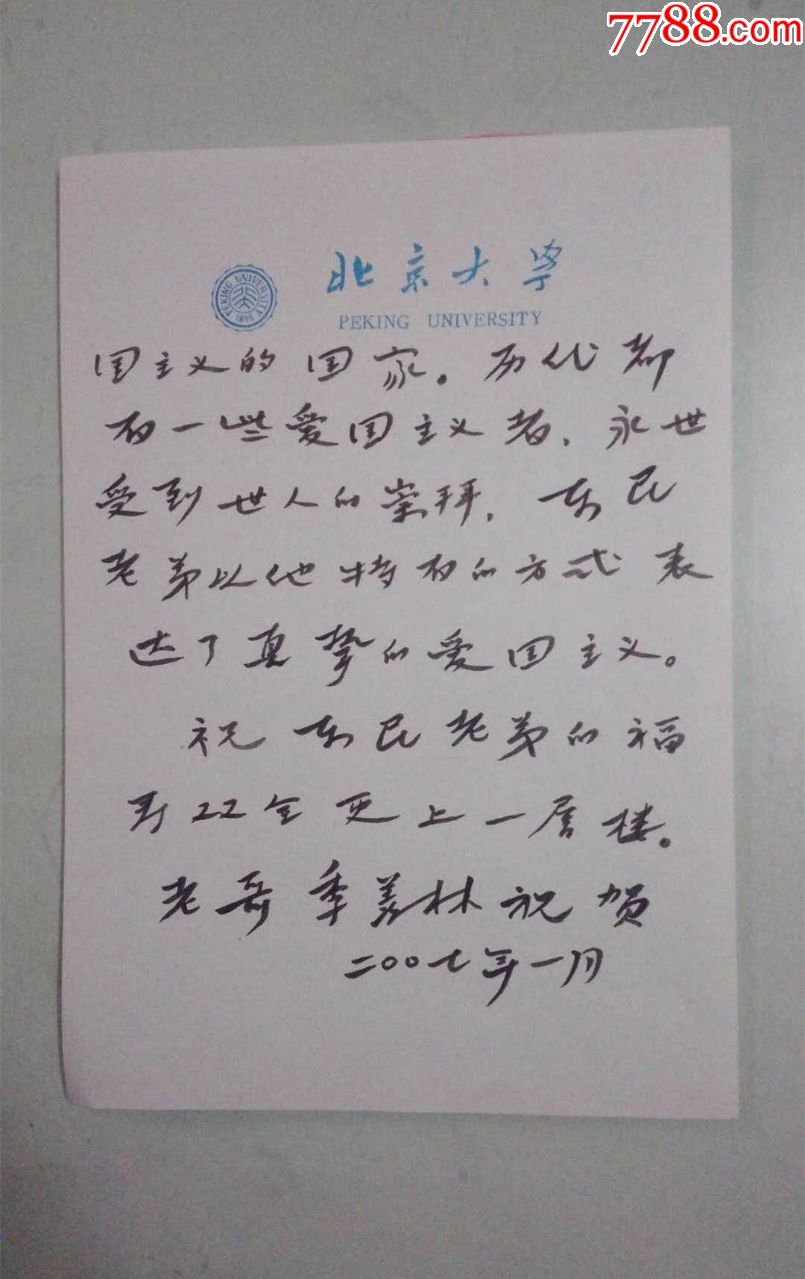 7788.com
北京大学
PEKING UNIVERSITY
PEKING UNIVERSITY
1898
国主义的国家。历代都
有一些爱国主义者,永世
受到世人的崇拜,东民
老弟以他特有的方式表
达了真挚的爱国主义。
祝东民老弟的福
寿双全更上一层楼。
老哥季羡林祝贺
二〇〇七年一月